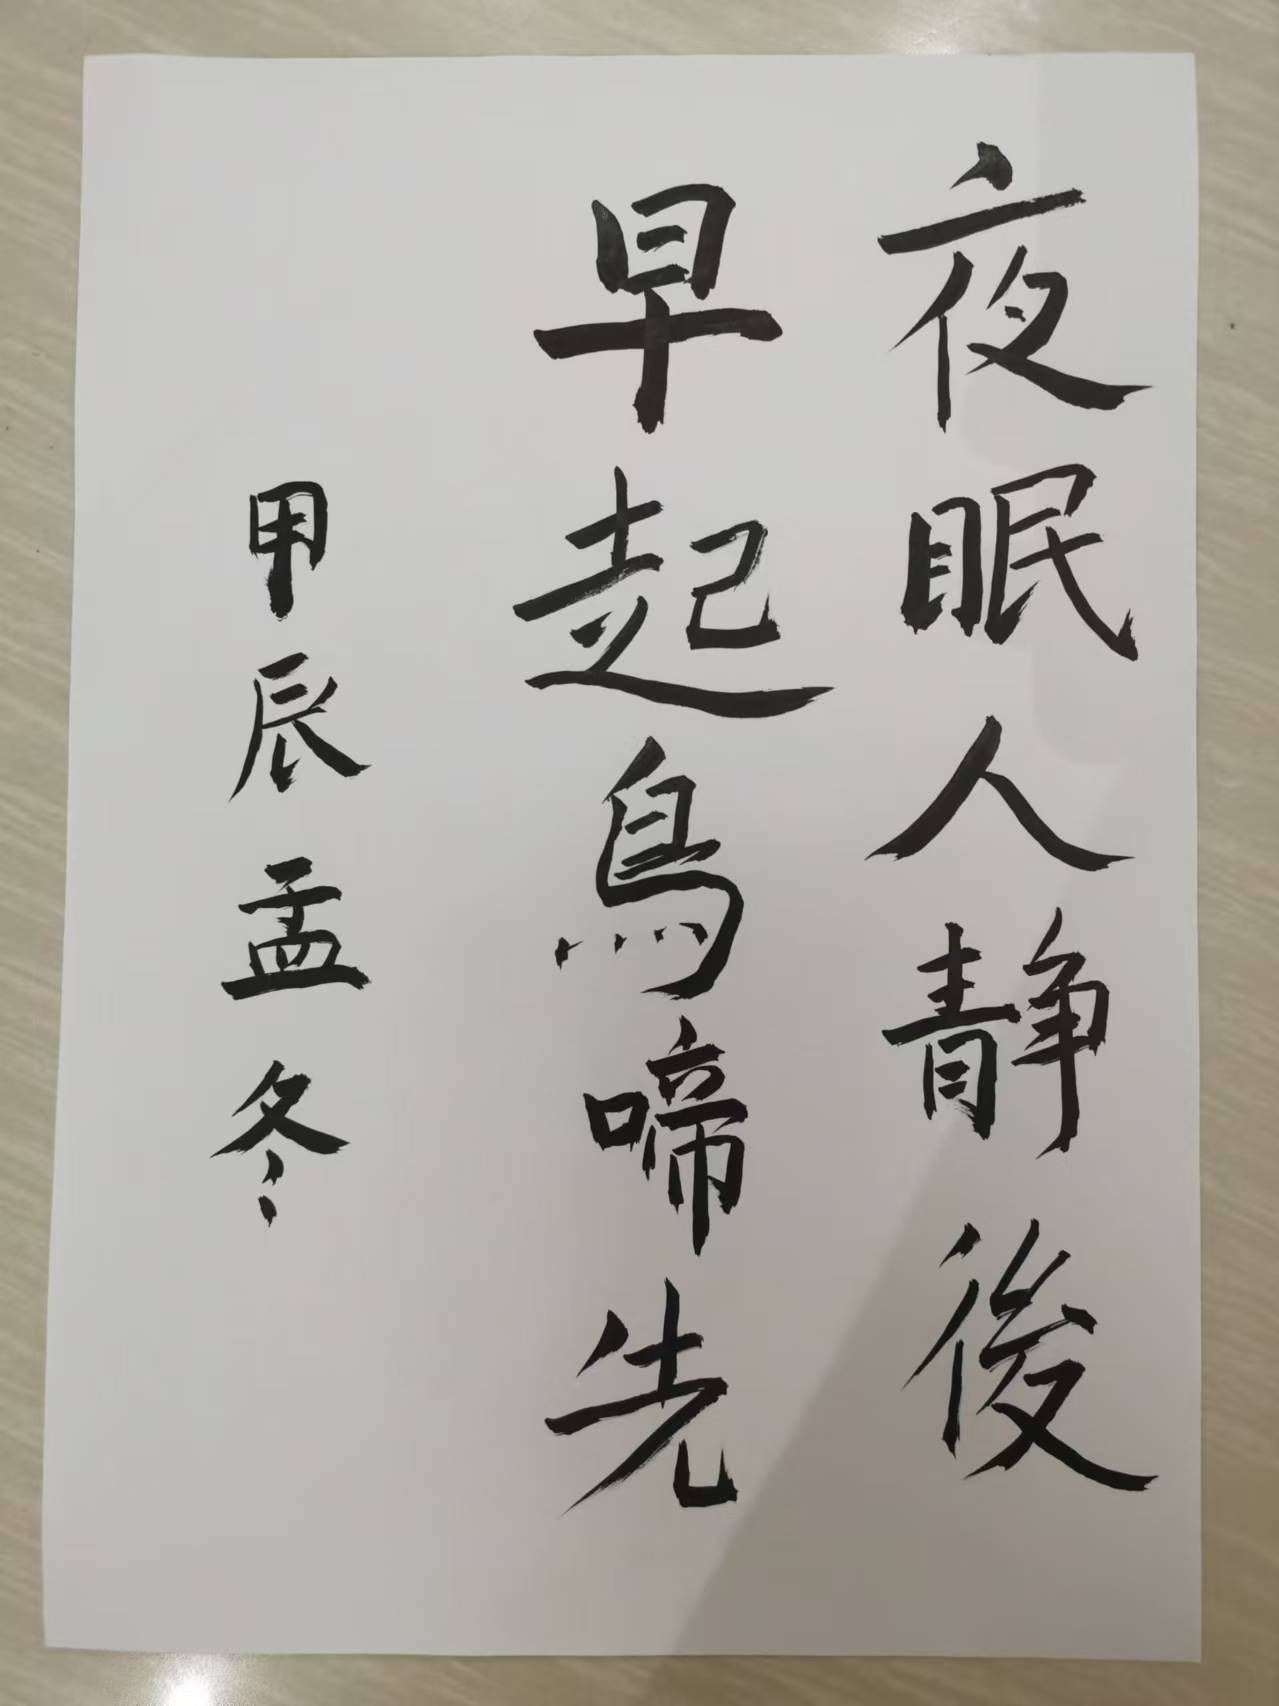 夜眠人静後
早起鳥啼先
甲辰孟冬